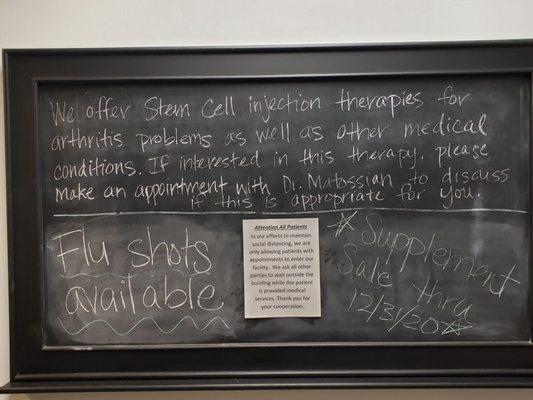 We offer Stem Cell injection therapies for
arthritis problems as well as other medical
conditions. If interested in this therapy, please
make an appointment with Dr. Matossian to discuss
if this is appropriate for you.
Flu shots
available
Attention All Patients
In our efforts to maintain
social distancing, we are
only allowing patients with
appointments to enter our
facility. We ask all other
parties to wait outside the
building while the patient
is provided medical
services. Thank you for
your cooperation.
Supplement
Sale thru
12/31/20